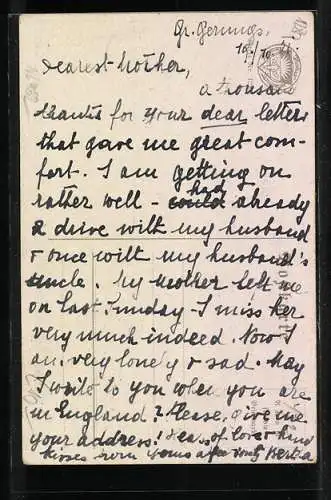 Gr. Gerungs,
Dearest Mother,
a thousand
thanks for your dear letter
that gave me great com-
fort. I am getting on
rather well - could had already
a drive with my husband
+ once with my husband's
uncle. My Mother left me
on last Sunday - I miss her
very much indeed. Now I
am very lonely + sad. May
I write to you when you are
in England? Please, give me
your address! Heaps of love + kind
kisses from yours Bertha